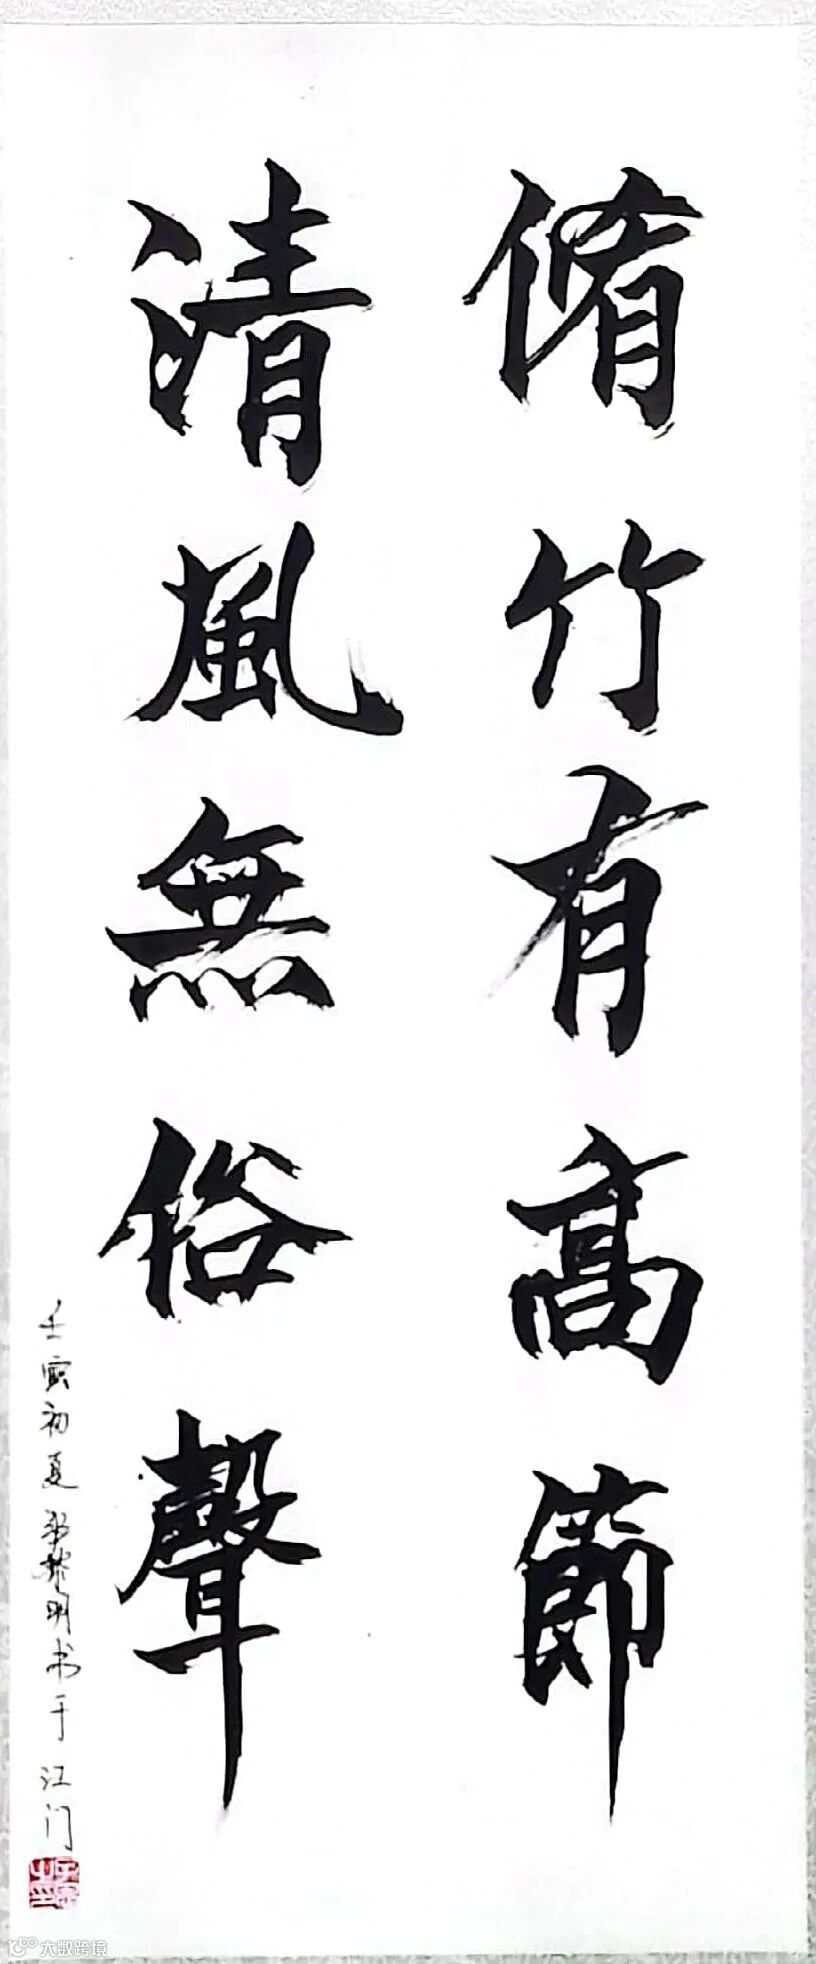 脩竹有高節
清風無俗聲
壬寅初夏梁黎明书于江门
大数跨境